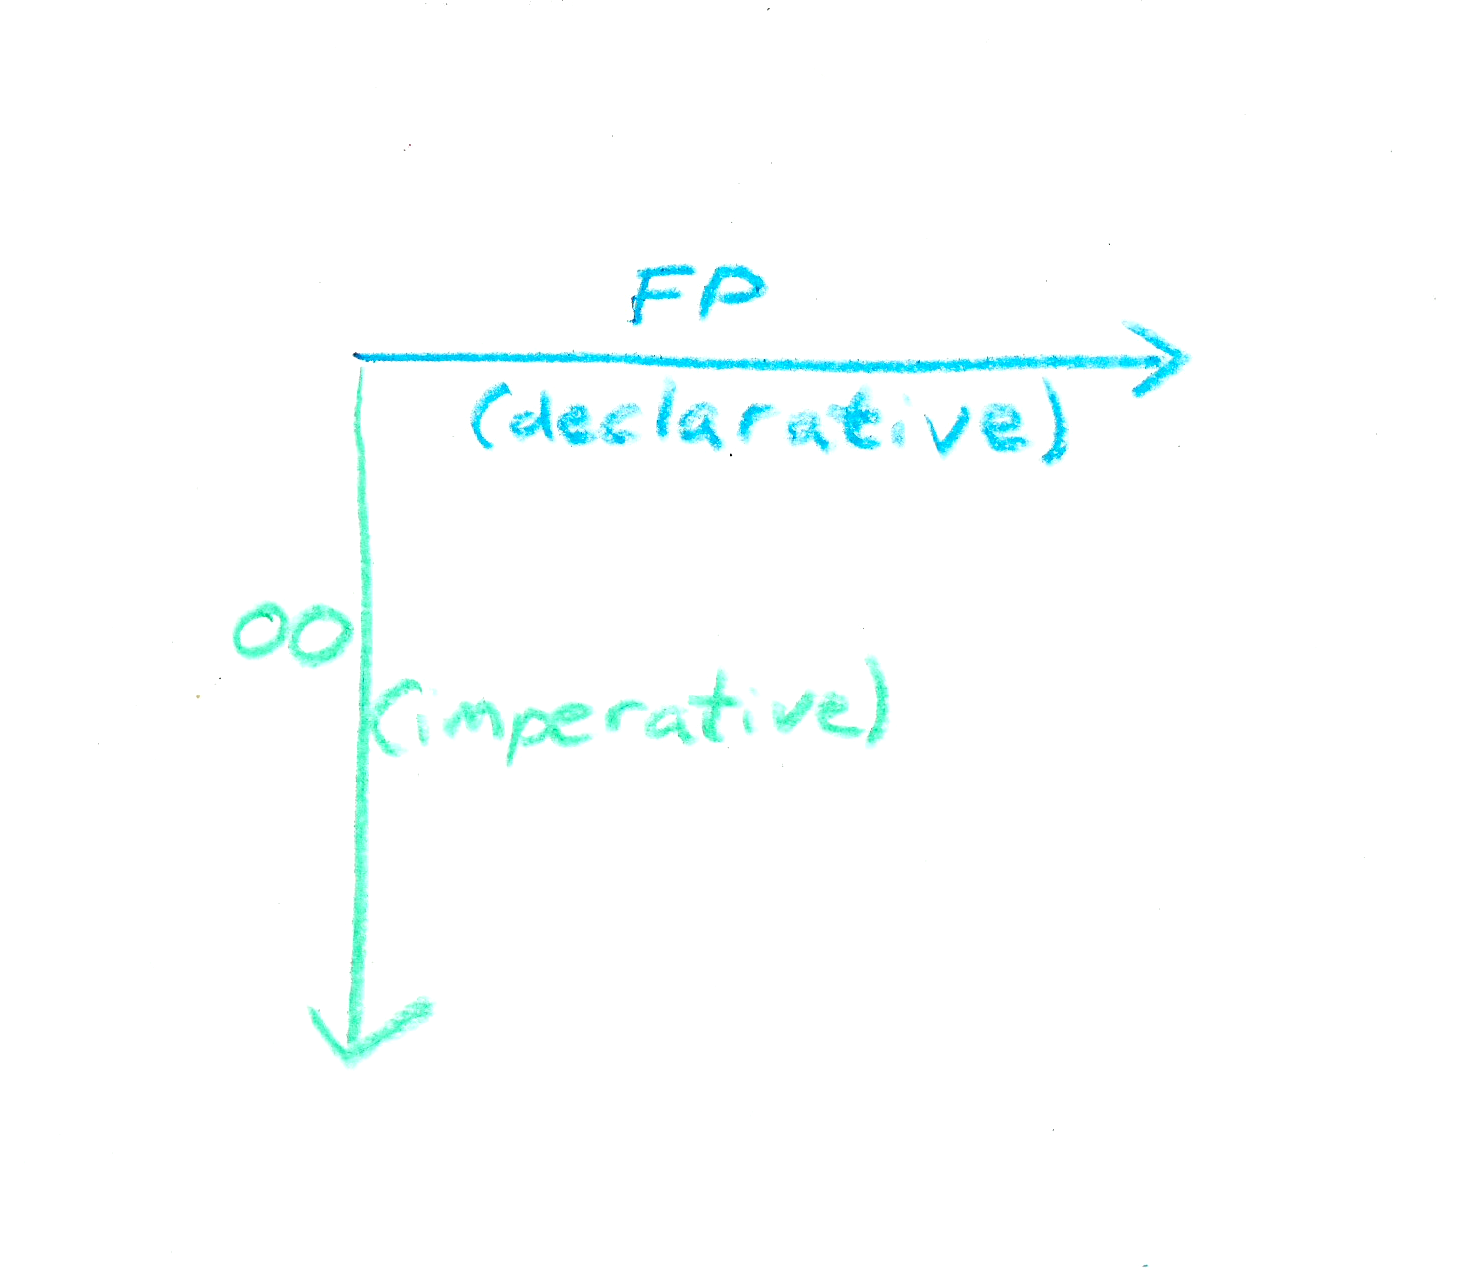 FP
(declarative)
OO
(imperative)